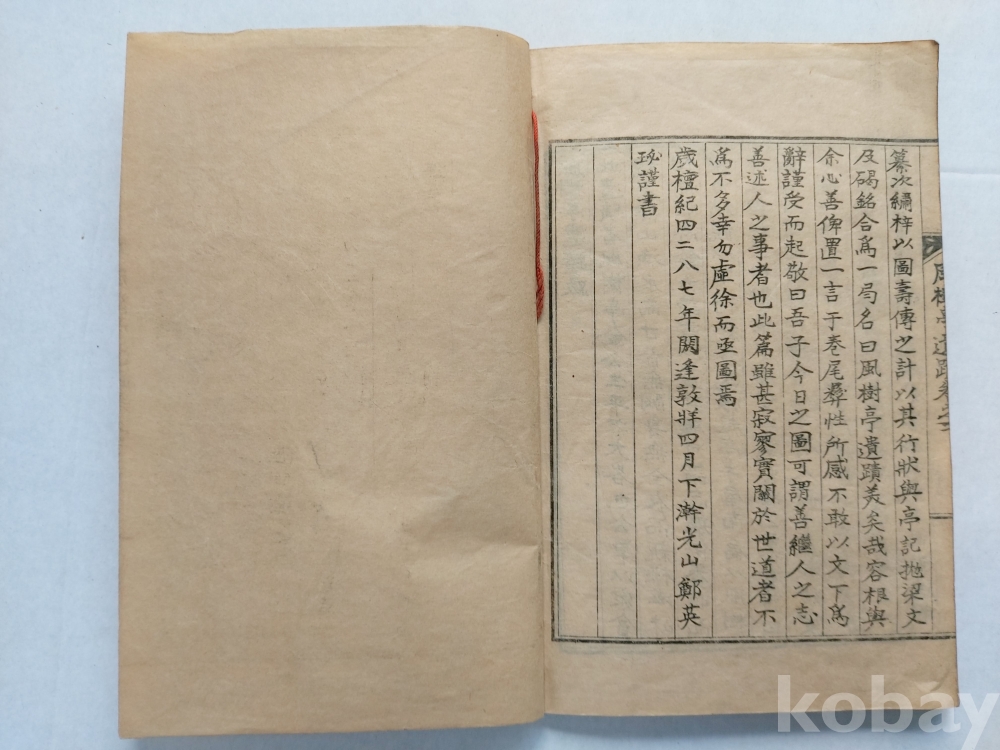 纂次繡梓以圖壽傳之計以其行狀與亭記抛梁文
及碣銘合爲一局名曰風樹亭遺蹟美矣哉容根與
余心善俾置一言于卷尾彛性所感不敢以文下爲
辭謹受而起敬曰吾子今日之圖可謂善繼人之志
善述人之事者也此篇雖甚寂寥實關於世道者不
爲不多幸勿虛徐而亟圖焉
歲檀紀四二八七年閼逢敦牂四月下澣光山鄭英
珌謹書
風樹亭遺蹟卷之
kobay